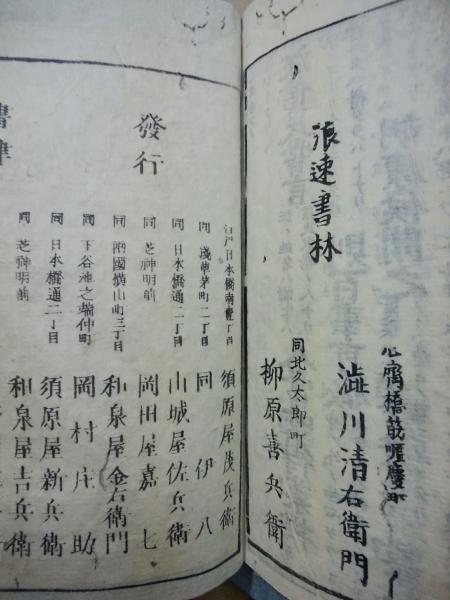 心齋橋筋
澁川清右衛門
浪速書林
同北久太郎町
柳原喜兵衛
江戸日本橋南壹丁目
須原屋茂兵衛
同淺草茅町二丁目
同伊八
同日本橋通二丁目
山城屋佐兵衛
同芝神明前
岡田屋嘉七
發行
同兩國横山町三丁目
和泉屋金右衛門
同下谷池之端仲町
岡村庄助
同日本橋通二丁目
須原屋新兵衛
同芝神明前
和泉屋吉兵衛
書肆